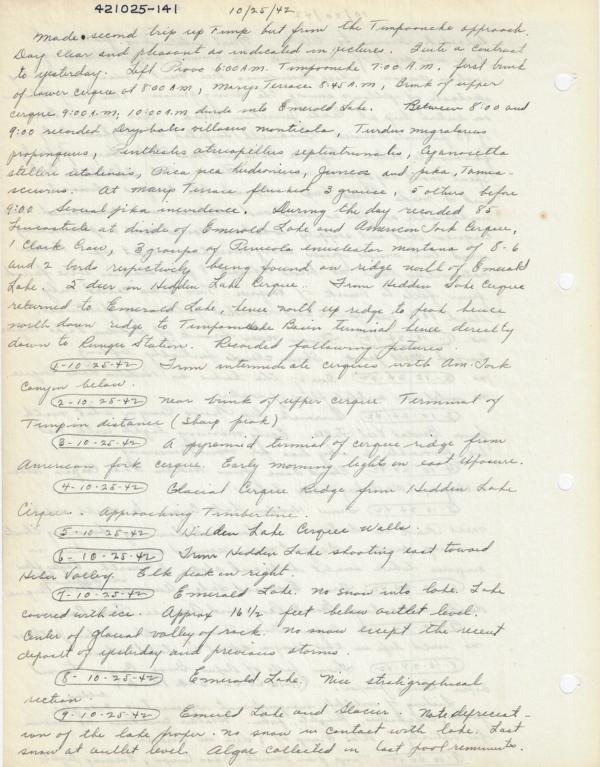 421025-141 10/25/42
Made second trip up Timp but from the Timpooneke approach.
Day clear and pleasant as indicated in pictures. Quite a contrast
to yesterday. Left Provo 6:00 A.M. Timpooneke 7:00 A.M. first brink
of lower cirque at 8:00 A.M, Marys Terrace 8:45 A.M, brink of upper
cirque 9:00 A.M; 10:00 A.M divide into Emerald Lake. Between 8:00 and
9:00 recorded Dryobates villosus monticola, Turdus migratorius
propinquus, Penthestes atricapillus septentrionalis, Cyanocitta
stelleri utahensis, Pica pica hudsonius, Juncos and pika, Tamia-
sciurus. At Marys Terrace flushed 3 grouse, 5 others before
9:00 Several pika in evidence. During the day recorded 85
Leucosticte at divide of Emerald Lake and American Fork Cirque,
1 Clark Crow, 3 groups of Pinicola enucleator montana of 8-6
and 2 birds respectively being found on ridge north of Emerald
Lake. 2 deer in Hidden Lake Cirque. From Hidden Lake Cirque
returned to Emerald Lake, hence north up ridge to peak hence
north down ridge to Timpooneke Basin terminal hence directly
down to Ranger Station. Recorded following pictures.
1-10-25-42 From intermediate cirques with Am. Fork
Canyon below.
2-10-25-42 Near brink of upper cirque. Terminal of
Timp in distance (sharp peak)
3-10-25-42 A pyramid terminal of cirque ridge from
American fork cirque. Early morning light on east exposure.
4-10-25-42 Glacial Cirque Ridge from Hidden Lake
Cirque. Approaching Timberline.
5-10-25-42 Hidden Lake Cirque Walls.
6-10-25-42 From Hidden Lake shooting east toward
Heber Valley. Elk peak on right.
7-10-25-42 Emerald Lake. No snow into lake. Lake
covered with ice. Approx 16 1/2 feet below outlet level.
Center of glacial valley of rock. No snow except the recent
deposit of yesterday and previous storms.
8-10-25-42 Emerald Lake. Nice stratigraphical
section.
9-10-25-42 Emerald Lake and Glacier. Note depreciat-
ion of the lake proper. No snow in contact with lake. Last
snow at outlet level. Algae collected in last pool remnants.